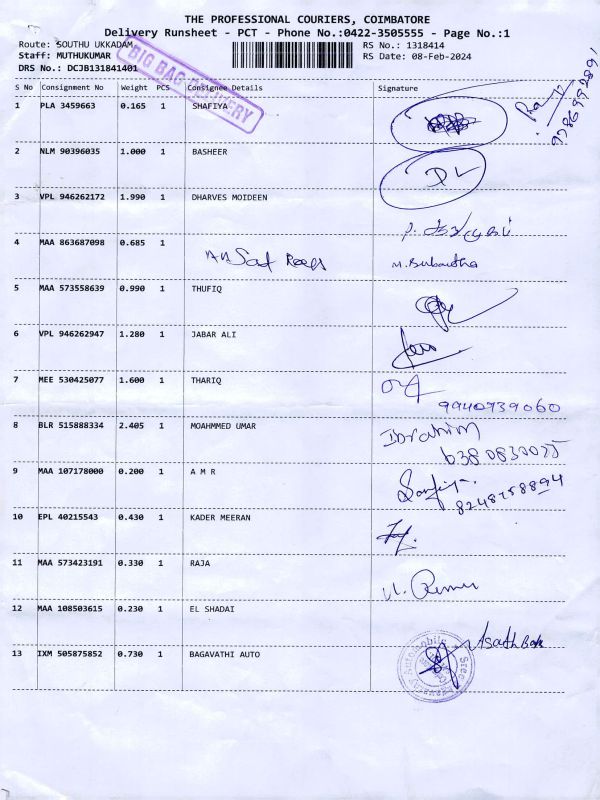 THE PROFESSIONAL COURIERS, COIMBATORE
Delivery Runsheet - PCT - Phone No.:0422-3505555 - Page No.:1
Route: SOUTHU UKKADAM
RS No.: 1318414
Staff: MUTHUKUMAR
RS Date: 08-Feb-2024
DRS No.: DCJB131841401
BIG BAG DELIVERY
S No Consignment No Weight PCS Consignee Details Signature
1 PLA 3459663 0.165 1 SHAFIYA
2 NLM 90396035 1.000 1 BASHEER
3 VPL 946262172 1.990 1 DHARVES MOIDEEN
4 MAA 863687098 0.685 1
5 MAA 573558639 0.990 1 THUFIQ
6 VPL 946262947 1.280 1 JABAR ALI
7 MEE 530425077 1.600 1 THARIQ
9940739060
8 BLR 515888334 2.405 1 MOAHMMED UMAR Ibrahim
9 MAA 107178000 0.200 1 A M R
8248758894
10 EPL 40215543 0.430 1 KADER MEERAN
11 MAA 573423191 0.330 1 RAJA
12 MAA 108503615 0.230 1 EL SHADAI
13 IXM 505875852 0.730 1 BAGAVATHI AUTO